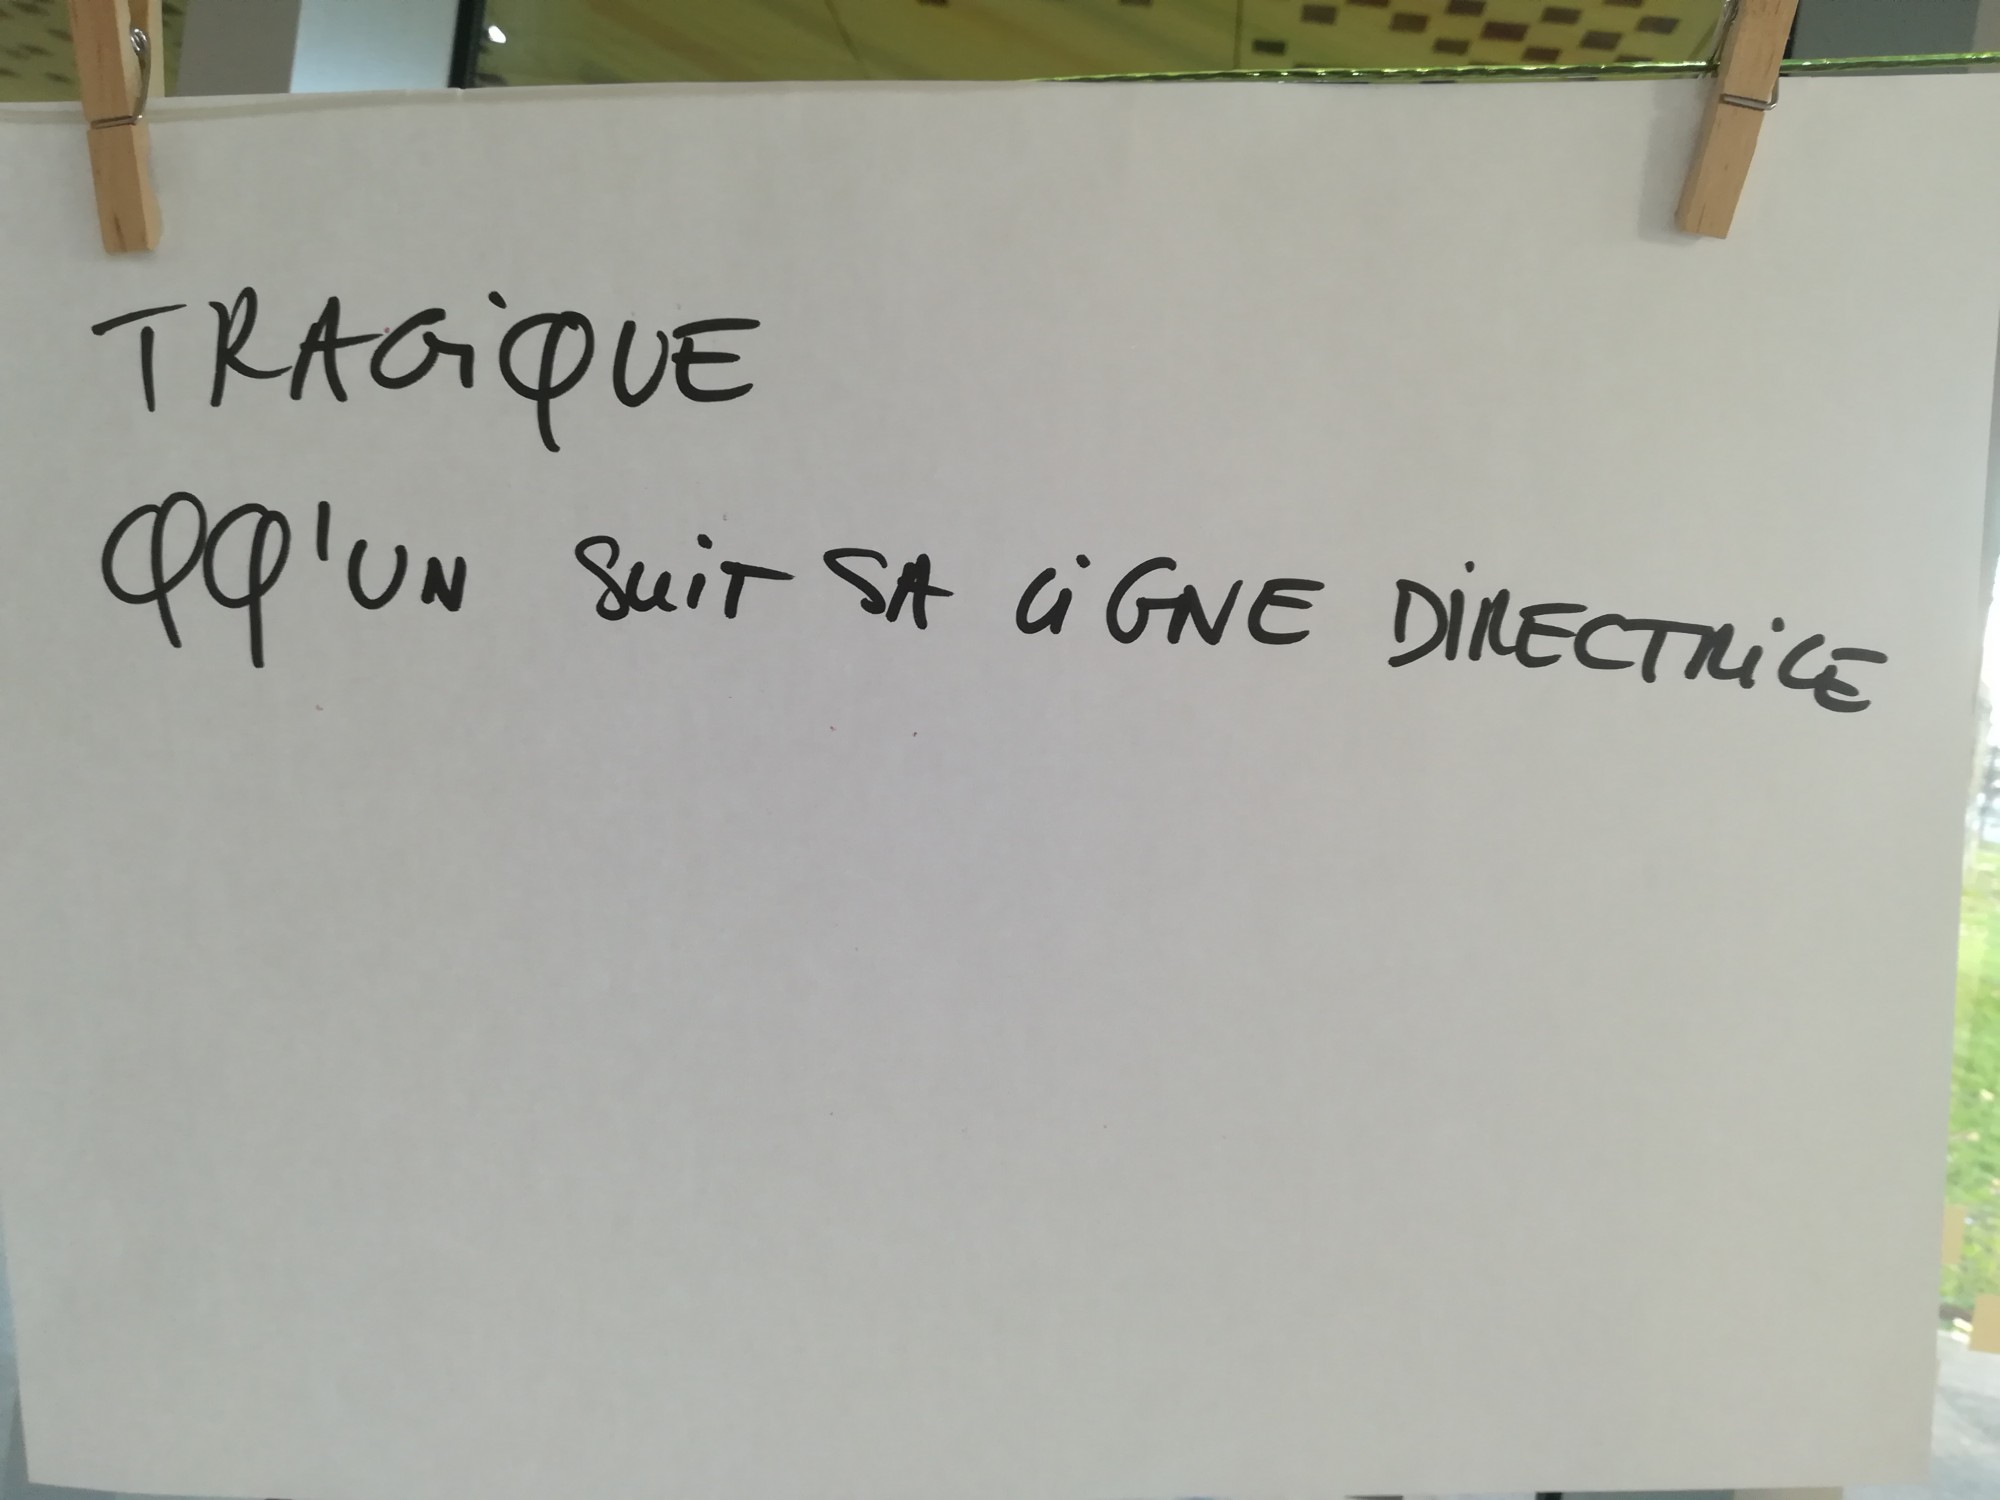 TRAGiQUE
QQ'UN SUiT SA LiGNE DiRECTRiCE